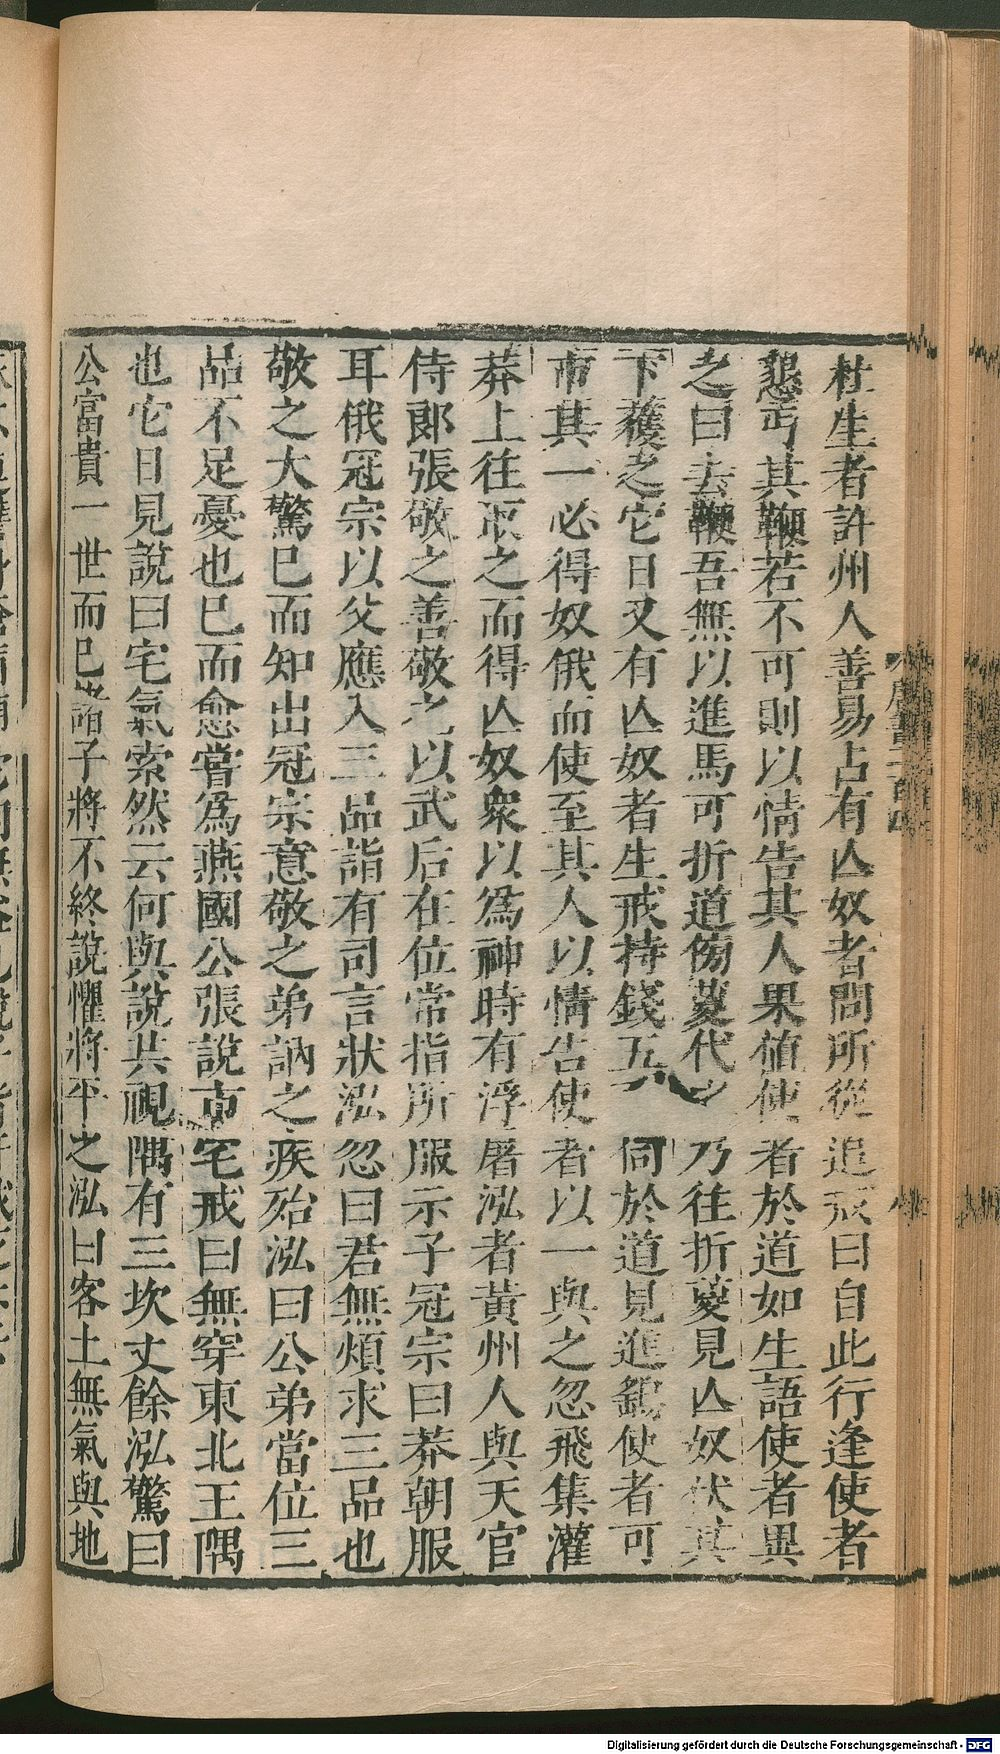 杜生者許州人善易占有亾奴者問所從追戒曰自此行逢使者
懇丐其鞭若不可則以情告其人果值使者於道如生語使者異
之曰去鞭吾無以進馬可折道傍葼代之乃往折葼見亾奴伏其
下獲之它日又有亾奴者生戒持錢五百伺於道見進鷂使者可
市其一必得奴俄而使至其人以情告使者以一與之忽飛集灌
莽上往取之而得亾奴衆以爲神時有浮屠泓者黃州人與天官
侍郞張敬之善敬之以武后在位常指所服示子冠宗曰莽朝服
耳俄冠宗以父應入三品詣有司言狀泓忽曰君無煩求三品也
敬之大驚已而知出冠宗意敬之弟訥之疾殆泓曰公弟當位三
品不足憂也已而愈嘗爲燕國公張說市宅戒曰無穿東北王隅
也它日見說曰宅氣索然云何與說共視隅有三坎丈餘泓驚曰
公富貴一世而已諸子將不終說懼將平之泓曰客土無氣與地
Digitalisierung gefördert durch die Deutsche Forschungsgemeinschaft - DFG